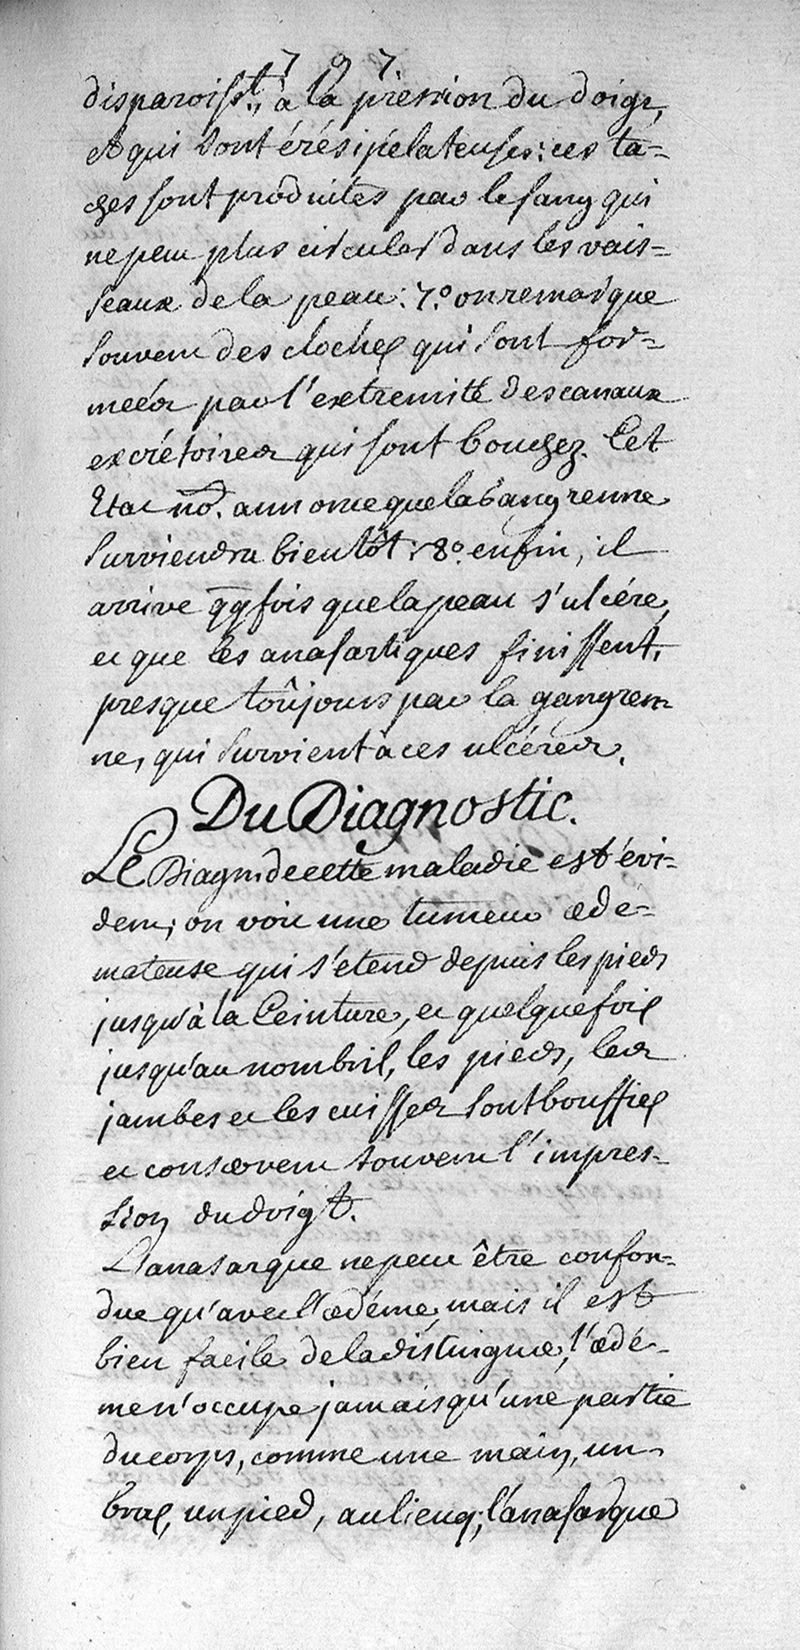 797
disparoiss.t, à la pression du doigt,
et qui sont érésipélateuses: ces ta-
ches sont produites par le sang qui
ne peut plus circuler dans les vais-
seaux de la peau: 7.° on remarque
souvent des cloches qui sont for-
meés par l'extremité des canaux
excrétoires qui sont bouchez. Cet
Etat no͞. annonce que la Gangrenne
surviendra bientôt: 8.° enfin, il
arrive qqfois que la peau s'ulcére,
et que les anasartiques finissent,
presque toûjours par la gangren-
ne, qui survient à ces ulcéres.
Du Diagnostic.
Le Diagn. de cette maladie est évi-
dent; on voit une tumeur œdé-
mateuse qui s'etend depuis les pieds
jusqu'à la Ceinture, et quelquefois
jusqu'au nombril, les pieds, les
jambes et les cuisses sont bouffies
et conservent souvent l'impres-
sion du doigt.
L'anasarque ne peut être confon-
due qu'avec l'œdéme, mais il est
bien facile de la distinguer, l'œdé-
me n'occupe jamais qu'une partie
du corps, comme une main, un
bras, un pied, au lieu q; l'anasarque